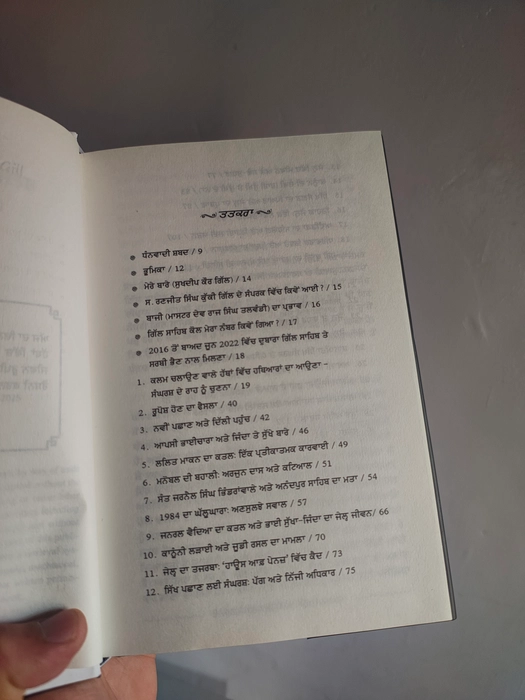 ਤਤਕਰਾ
• ਧੰਨਵਾਦੀ ਸ਼ਬਦ / 9
• ਭੂਮਿਕਾ / 12
• ਮੇਰੇ ਬਾਰੇ (ਸੁਖਦੀਪ ਕੌਰ ਗਿੱਲ) / 14
• ਸ. ਰਣਜੀਤ ਸਿੰਘ ਕੁੱਕੀ ਗਿੱਲ ਦੇ ਸੰਪਰਕ ਵਿੱਚ ਕਿਵੇਂ ਆਈ ? / 15
• ਬਾਜੀ (ਮਾਸਟਰ ਦੇਵ ਰਾਜ ਸਿੰਘ ਤਲਵੰਡੀ) ਦਾ ਪ੍ਰਭਾਵ / 16
• ਗਿੱਲ ਸਾਹਿਬ ਕੋਲ ਮੇਰਾ ਨੰਬਰ ਕਿਵੇਂ ਗਿਆ ? / 17
• 2016 ਤੋਂ ਬਾਅਦ ਜੂਨ 2022 ਵਿੱਚ ਦੁਬਾਰਾ ਗਿੱਲ ਸਾਹਿਬ ਤੇ
ਸਰਬੀ ਭੈਣ ਨਾਲ ਮਿਲਣਾ / 18
1. ਕਲਮ ਚਲਾਉਣ ਵਾਲੇ ਹੱਥਾਂ ਵਿੱਚ ਹਥਿਆਰਾਂ ਦਾ ਆਉਣਾ –
ਸੰਘਰਸ਼ ਦੇ ਰਾਹ ਨੂੰ ਚੁਣਨਾ / 19
2. ਰੂਪੋਸ਼ ਹੋਣ ਦਾ ਫੈਸਲਾ / 40
3. ਨਵੀਂ ਪਛਾਣ ਅਤੇ ਦਿੱਲੀ ਪਹੁੰਚ / 42
4. ਆਪਸੀ ਭਾਈਚਾਰਾ ਅਤੇ ਜਿੰਦਾ ਤੇ ਸੁੱਖੇ ਬਾਰੇ / 46
5. ਲਲਿਤ ਮਾਕਨ ਦਾ ਕਤਲ: ਇੱਕ ਪ੍ਰਤੀਕਾਤਮਕ ਕਾਰਵਾਈ / 49
6. ਮਨੋਬਲ ਦੀ ਬਹਾਲੀ: ਅਰਜੁਨ ਦਾਸ ਅਤੇ ਕਟਿਆਲ / 51
7. ਸੰਤ ਜਰਨੈਲ ਸਿੰਘ ਭਿੰਡਰਾਂਵਾਲੇ ਅਤੇ ਅਨੰਦਪੁਰ ਸਾਹਿਬ ਦਾ ਮਤਾ / 54
8. 1984 ਦਾ ਘੱਲੂਘਾਰਾ: ਅਣਸੁਲਝੇ ਸਵਾਲ / 57
9. ਜਨਰਲ ਵੈਦਿਆ ਦਾ ਕਤਲ ਅਤੇ ਭਾਈ ਸੁੱਖਾ-ਜਿੰਦਾ ਦਾ ਜੇਲ੍ਹ ਜੀਵਨ/ 66
10. ਕਾਨੂੰਨੀ ਲੜਾਈ ਅਤੇ ਜੂਡੀ ਰਸਲ ਦਾ ਮਾਮਲਾ / 70
11. ਜੇਲ੍ਹ ਦਾ ਤਜਰਬਾ: 'ਹਾਊਸ ਆਫ਼ ਪੇਨਜ਼' ਵਿੱਚ ਕੈਦ / 73
12. ਸਿੱਖ ਪਛਾਣ ਲਈ ਸੰਘਰਸ਼: ਪੱਗ ਅਤੇ ਨਿੱਜੀ ਅਧਿਕਾਰ / 75